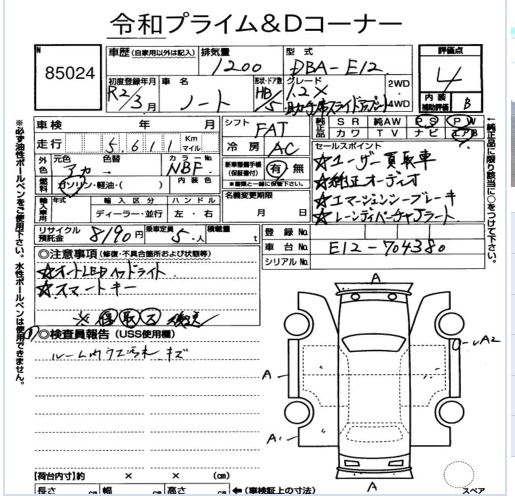 令和プライム&Dコーナー
N 85024
車歴 (自家用以外は記入) 排気量 1200 型式 DBA-E12 評価点 4
初度登録年月 R2/3月 車名 ノート 形状・ドア数 HB/5 グレード 1.2X 助手席スライドアップシート 2WD 4WD 内装補助評価 B
車検 年 月 シフト FAT 純正品 SR 純AW PS PW
走行 5611 Km マイル 冷房 AC カワ TV ナビ エアB
外色 元色 アカ 色替 → カラーNo NBF 新車整備手帳(保証書付) 有 無 ※書類と一緒に保管下さい。
セールスポイント
☆ユーザー買取車
☆純正オーディオ
☆エマージェンシーブレーキ
☆レーンディパーチャアラート
燃料 ガソリン・軽油・( ) 内装色
輸入車用 年式 輸入車 ハンドル 名義変更期限 月 日
ディーラー・並行 左・右
リサイクル預託金 8190円 乗車定員 5人 積載量 t 登録No.
車台No. E12-704380
シリアルNo.
◎注意事項 (修復・不具合箇所および状態等)
☆オートLEDヘッドライト
☆スマートキー
※ 保 取 ス
◎検査員報告 (USS使用欄)
ルーム内ウエ汚れ キズ
A
A2
A
A
A
スペア
【荷台内寸】約 × × (cm)
長さ cm 幅 cm 高さ cm ←(車検証上の寸法)
※必ず油性ボールペンをご使用下さい。水性ボールペンは使用できません。
←純正品に限り該当に○をつけて下さい。